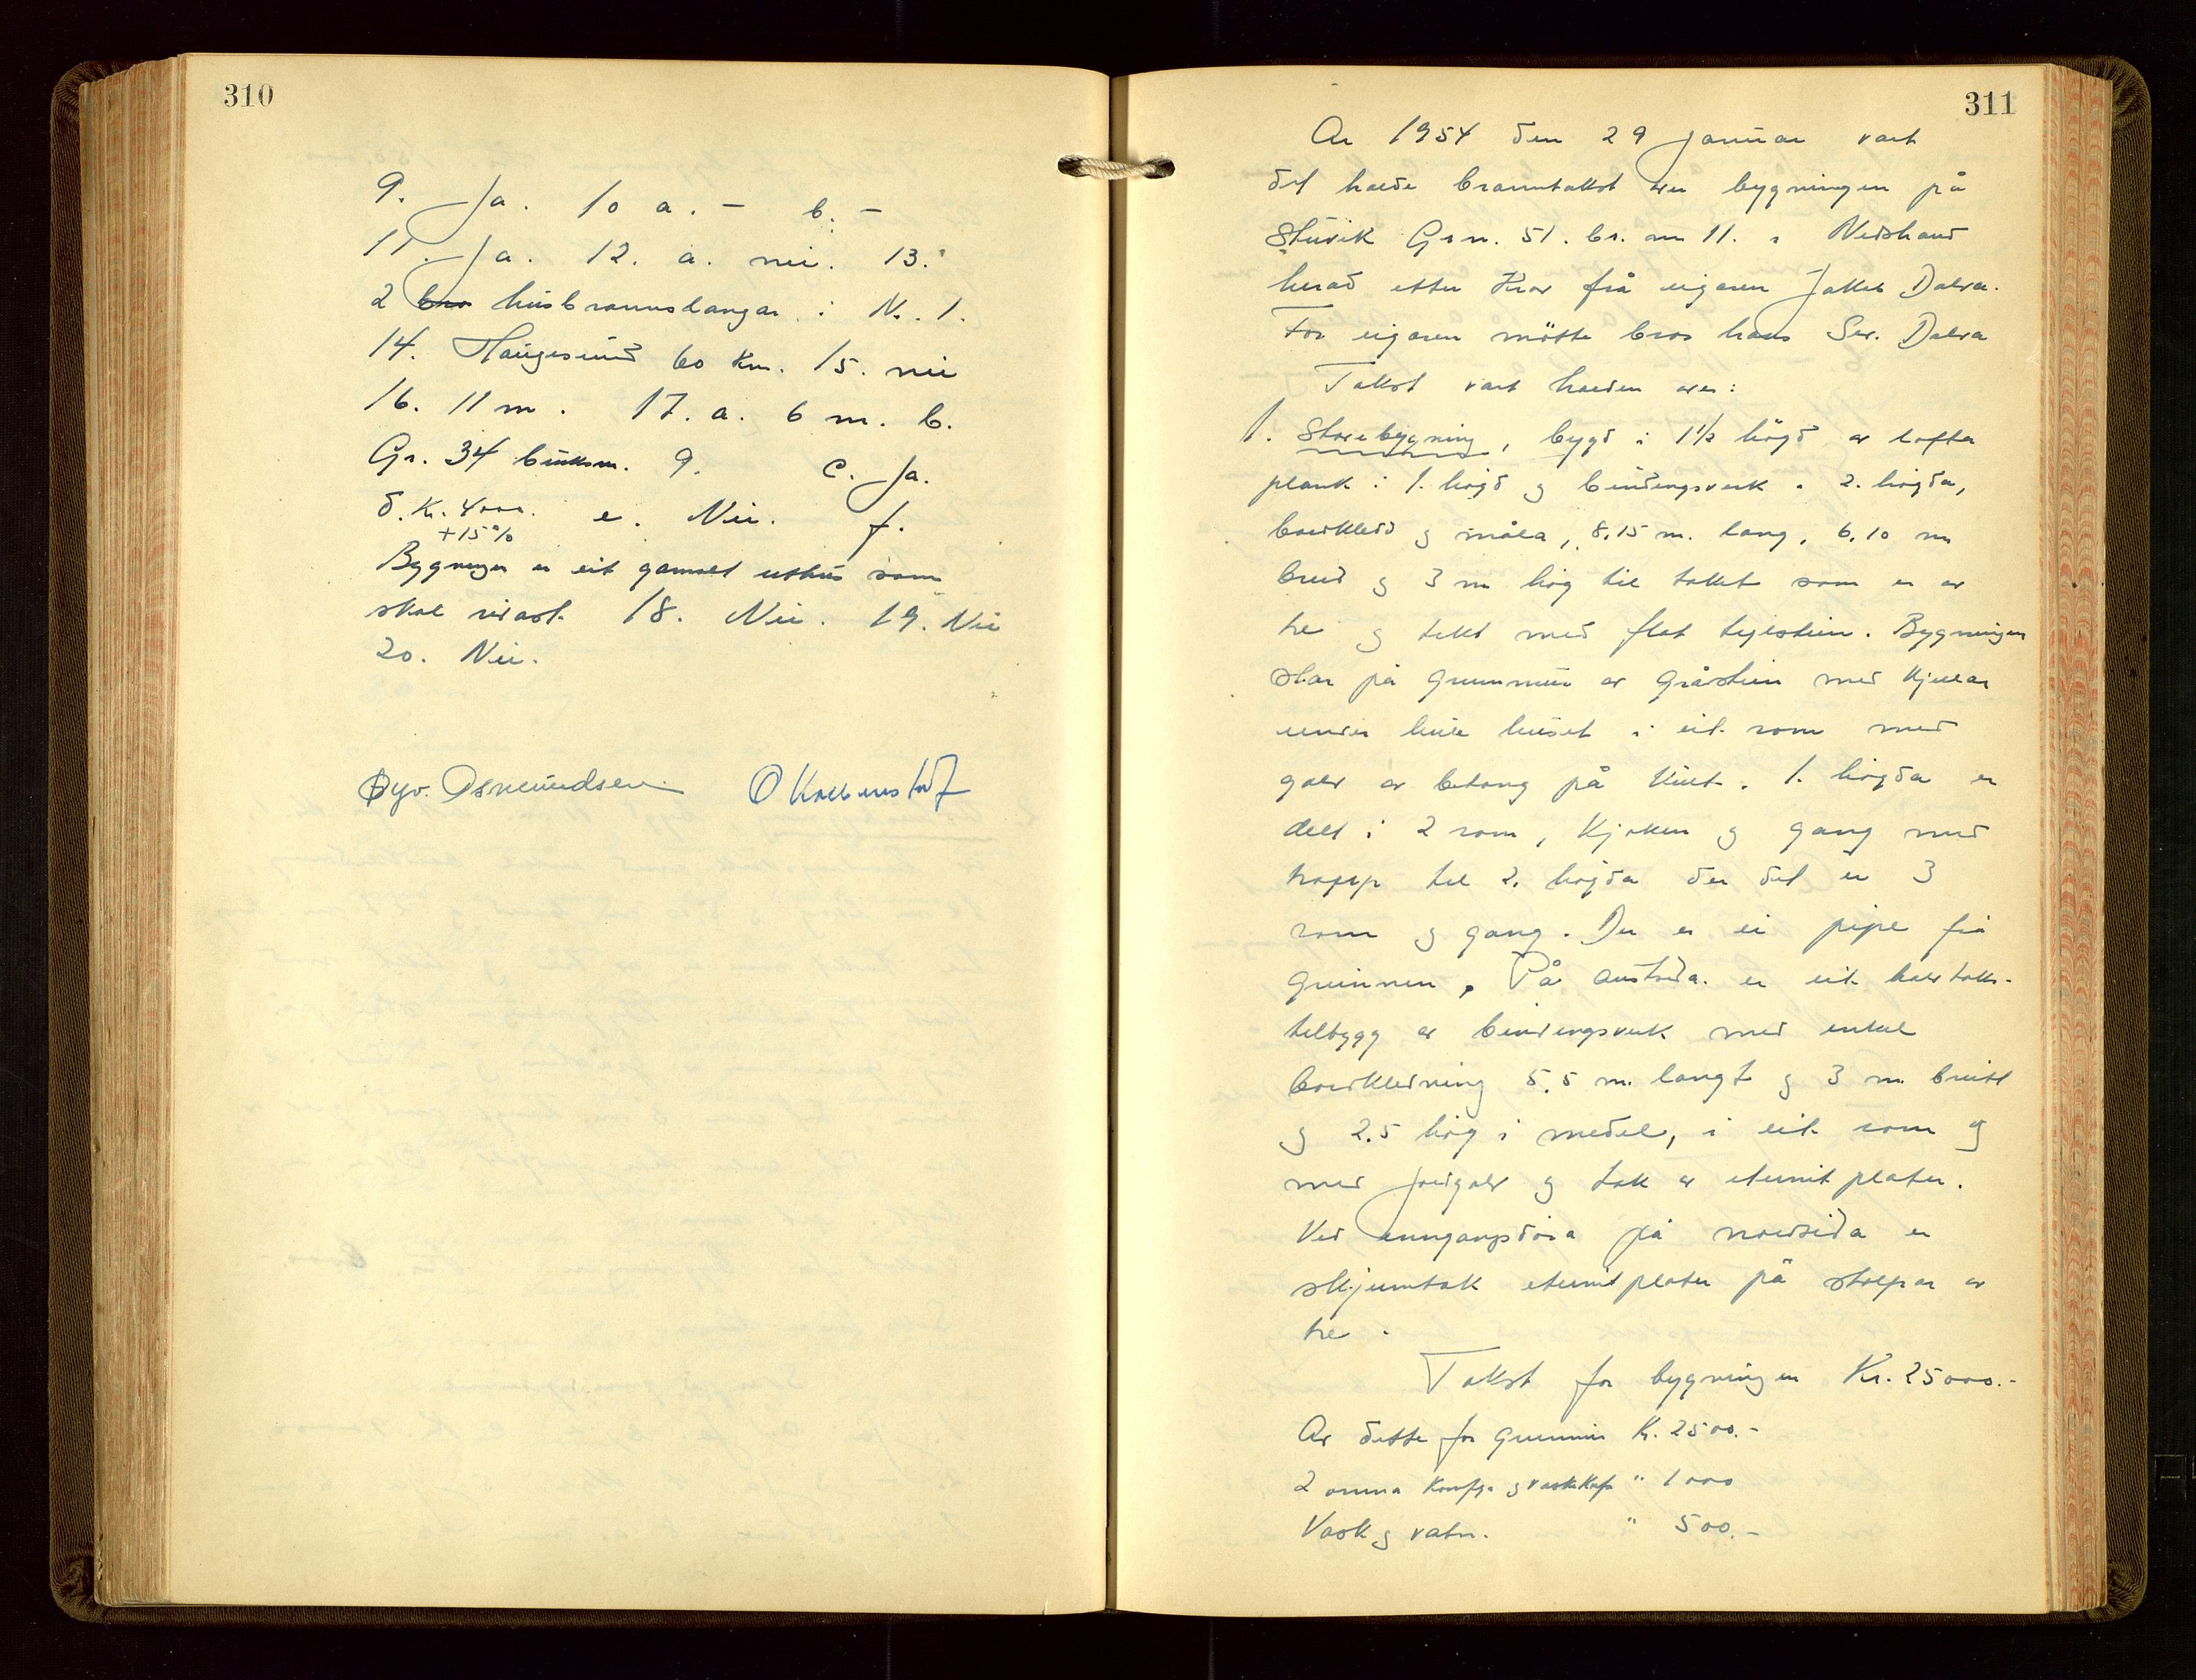 310
9. Ja. 10 a. – b. –
11. Ja. 12. a. nei. 13.
2 bra husbrannslangar i Nr. 1.
14. Haugesund 60 km. 15. nei
16. 11 m. 17. a. 6 m. b.
Gr. 34 bruksnr. 9. c. Ja.
d. Kr. 4000. e. Nei. f.
+15%
Bygningen er eit gamalt uthus som
skal rivast. 18. Nei. 19. Nei
20. Nei.
Øyv. Osmundsen
311
År 1954 den 29 januar vart
det halde branntakst over bygningen på
Stuvik Grn. 51. br. nr 11. i Nedstrand
herad etter krav frå eigaren Jakob Dalva.
For eigaren møtte bror hans Sev. Dalva
Takst vart halden over:
1. Stovebygning, bygd i 1½ høgd av lofta
plank i 1. høgd og bindingsverk i 2. høgda,
bordkledd og måla, 8.15 m. lang, 6.10 m
breid og 3 m høg til taket som er av
tre og tekt med flat teglstein. Bygningen
står på grunnmur av gråstein med kjellar
under heile huset i eit rom med
golv av betong på kult. 1. høgda er
delt i 2 rom, kjøken og gang med
trapp til 2. høgda der det er 3
rom og gang. Der er ei pipe frå
grunnen. På austsida er eit halvtaks-
tilbygg av bindingsverk med enkel
bordkledning 5.5 m. langt og 3 m. breitt
og 2.5 høg i medel, i eit rom og
med jordgolv og tak av eternitplater.
Ved inngangsdøra på nordsida er
skjermtak eternitplater på stolpar av
tre.
Takst for bygningen Kr. 25000.-
Av dette for grunnmur Kr. 2500.-
2 omnar komfyr og vaskekjel " 1000
Vask og vatn. " 500.-